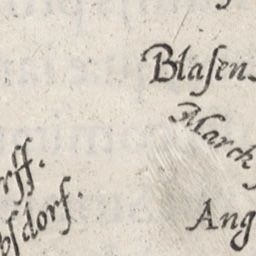 Blasen
Marck
rff.
bsdorf.
Ang